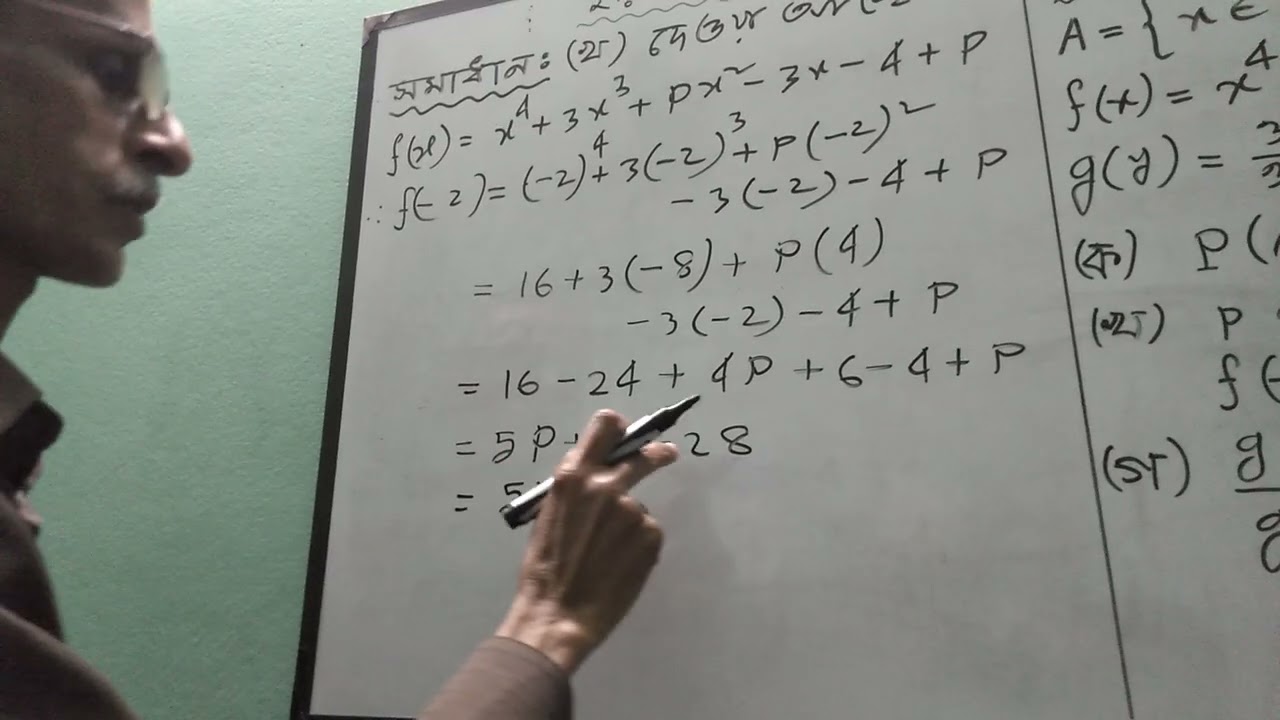 সমাধান: (খ) দেওয়া
f(x) = x⁴ + 3x³ + px² - 3x - 4 + p
∴ f(-2) = (-2)⁴ + 3(-2)³ + p(-2)²
- 3(-2) - 4 + p
= 16 + 3(-8) + p(4)
- 3(-2) - 4 + p
= 16 - 24 + 4p + 6 - 4 + p
= 5p + 28
= 5
A = { x ∈
f(x) = x⁴
g(y) =
(ক) P(
(খ) P
f(-
(গ) g